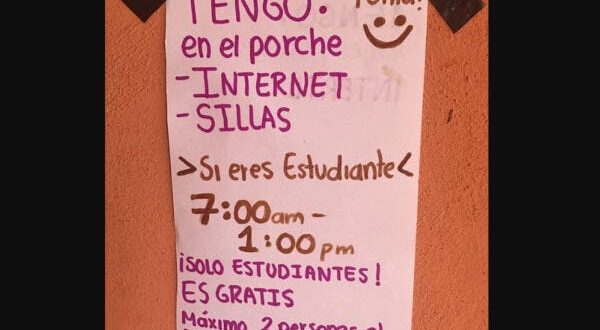 TENGO:
en el porche
-INTERNET
-SILLAS
>Si eres Estudiante<
7:00am-
1:00pm
¡SOLO ESTUDIANTES!
ES GRATIS
Máximo 2 personas al